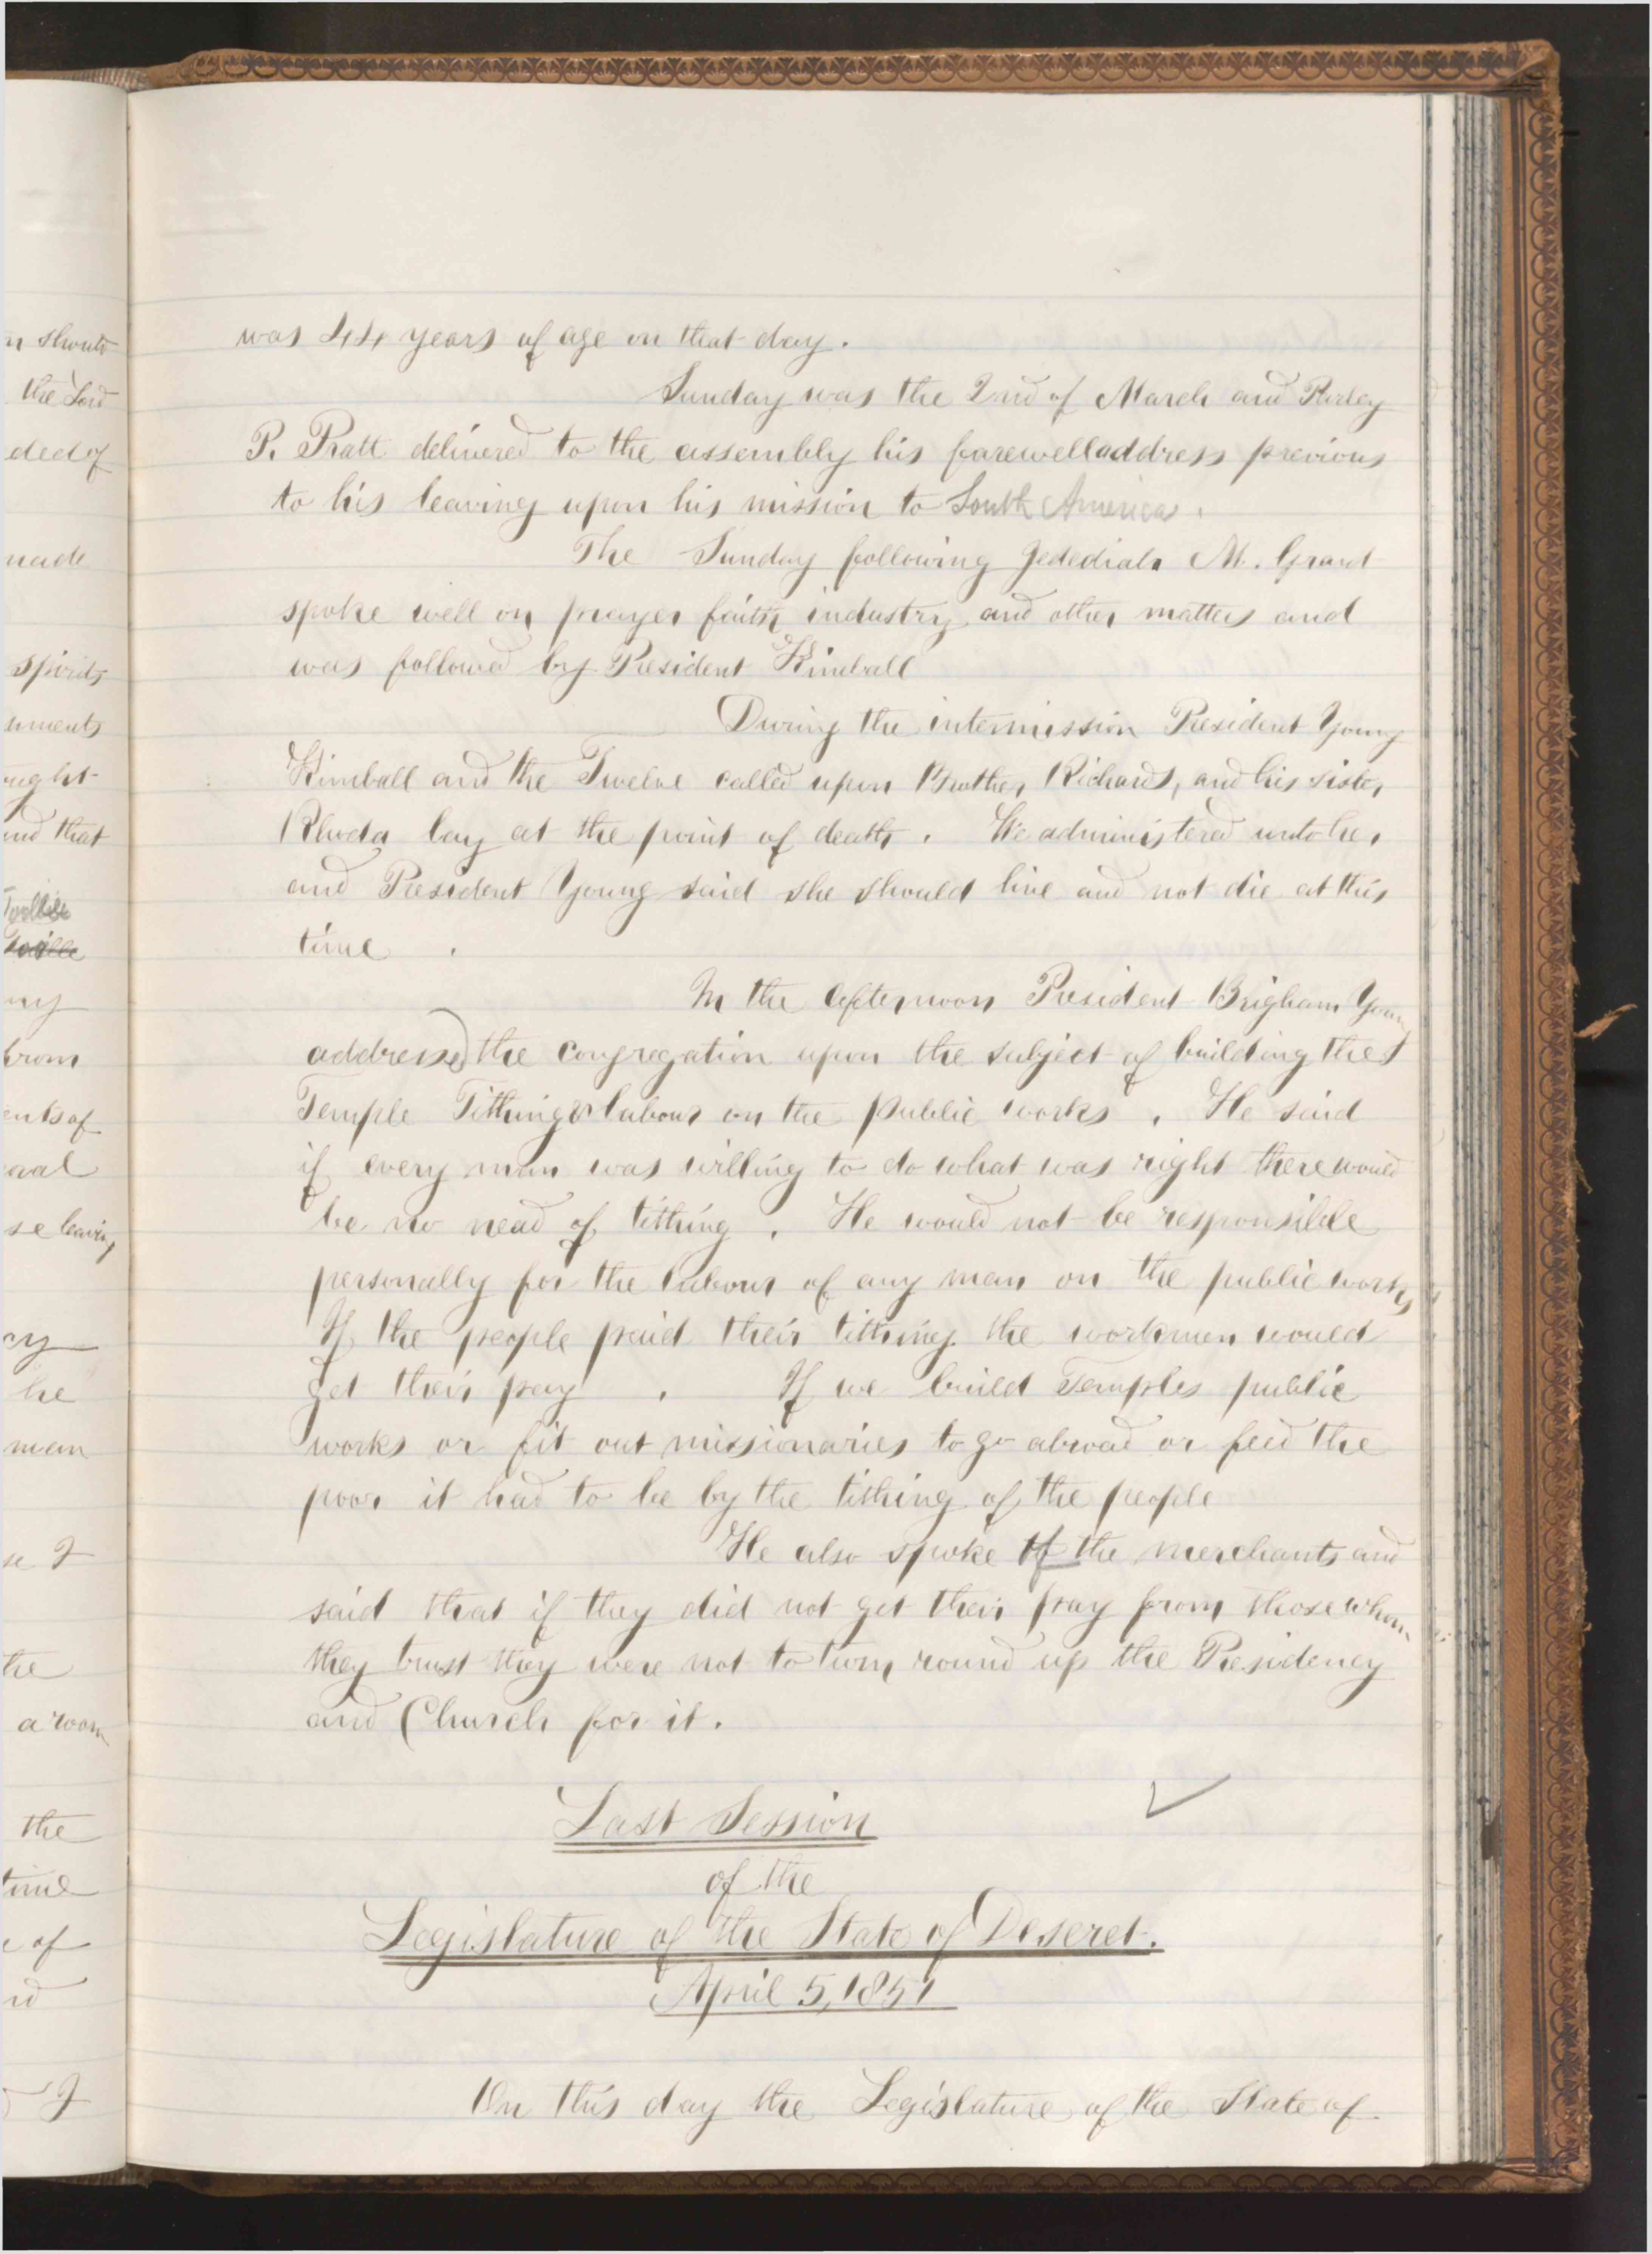 was 44 years of age on that day.
Sunday was the 2nd of March and Parley
P. Pratt delivered to the assembly his farewell address previous
to his leaving upon his mission to South America.
The Sunday following Jedediah M. Grant
spoke well on prayer faith industry and other matters and
was followed by President Kimball
During the intermission President Young
Kimball and the Twelve called upon Brother Richards, and his sister
Rhoda lay at the point of death. We administered unto her
and President Young said she should live and not die at this
time.
In the afternoon President Brigham Young
addressed the congregation upon the subject of building the
Temple Tithing & labour on the public works. He said
if every man was willing to do what was right there would
be no nead of tithing. He would not be responsible
personally for the labour of any man on the public works
If the people paid their tithing the workmen would
get their pay. If we build Temples public
works or fit out missionaries to go abroad or feed the
poor it had to be by the tithing of the people
He also spoke of the merchants and
said that if they did not get their pay from those whom
they trust they were not to turn round up the Presidency
and Church for it.
Last Session
of the
Legislature of the State of Deseret.
April 5, 1851
On this day the Legislature of the State of
n should
the Lord
ded of
made
spirits
ught
and that
ny
from
ents of
se leaving
cy
he
man
se I
the
a room
the
time
e of
I